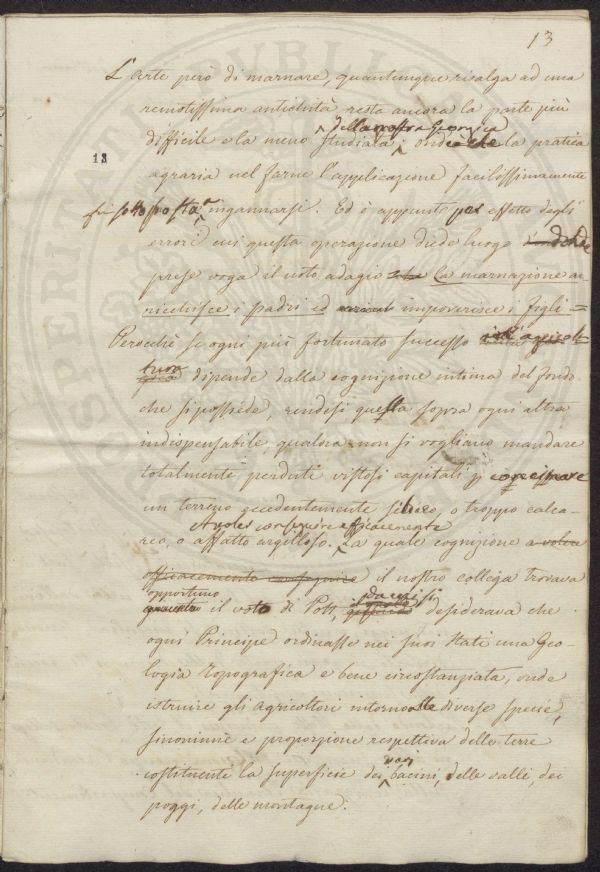 13
L'arte però di marnare, quantunque risalga ad una
remotissima antichità resta ancora la parte più
della nostra Georgica
difficile e la meno studiata, onde la pratica
13
agraria nel farne l'applicazione facilissimamente
fu sottoposta a ingannarsi. Ed è appunto per effetto degli
errori cui questa operazione diede luogo donde
prese voga il noto adagio la marnazione ar
ricchisce i padri ed impoverisce i figli =
Perocchè se ogni più fortunato successo agricol
dipende dalla cognizione intima del fondo
che si possede, rendesi questa sopra ogni altra
indispensabile, qualora non si vogliano mandare
totalmente perduti vistosi capitali p concimare
un terreno eccedentemente siliceo, o troppo calca-
A voler conseguire efficacemente
reo, o affatto argilloso. La quale cognizione a voler
efficacemente conseguire il nostro collega trovava
opportuno
il voto di Pott, desiderava che
ogni Principe ordinasse nei suoi stati una Geo-
logia topografica e bene circostanziata, onde
istruire gli agricoltori intorno alle diverse specie,
sinonimie e proporzione respettiva delle terre
vari
costituenti la superficie dei bacini, delle valli, dei
poggi, delle montagne.